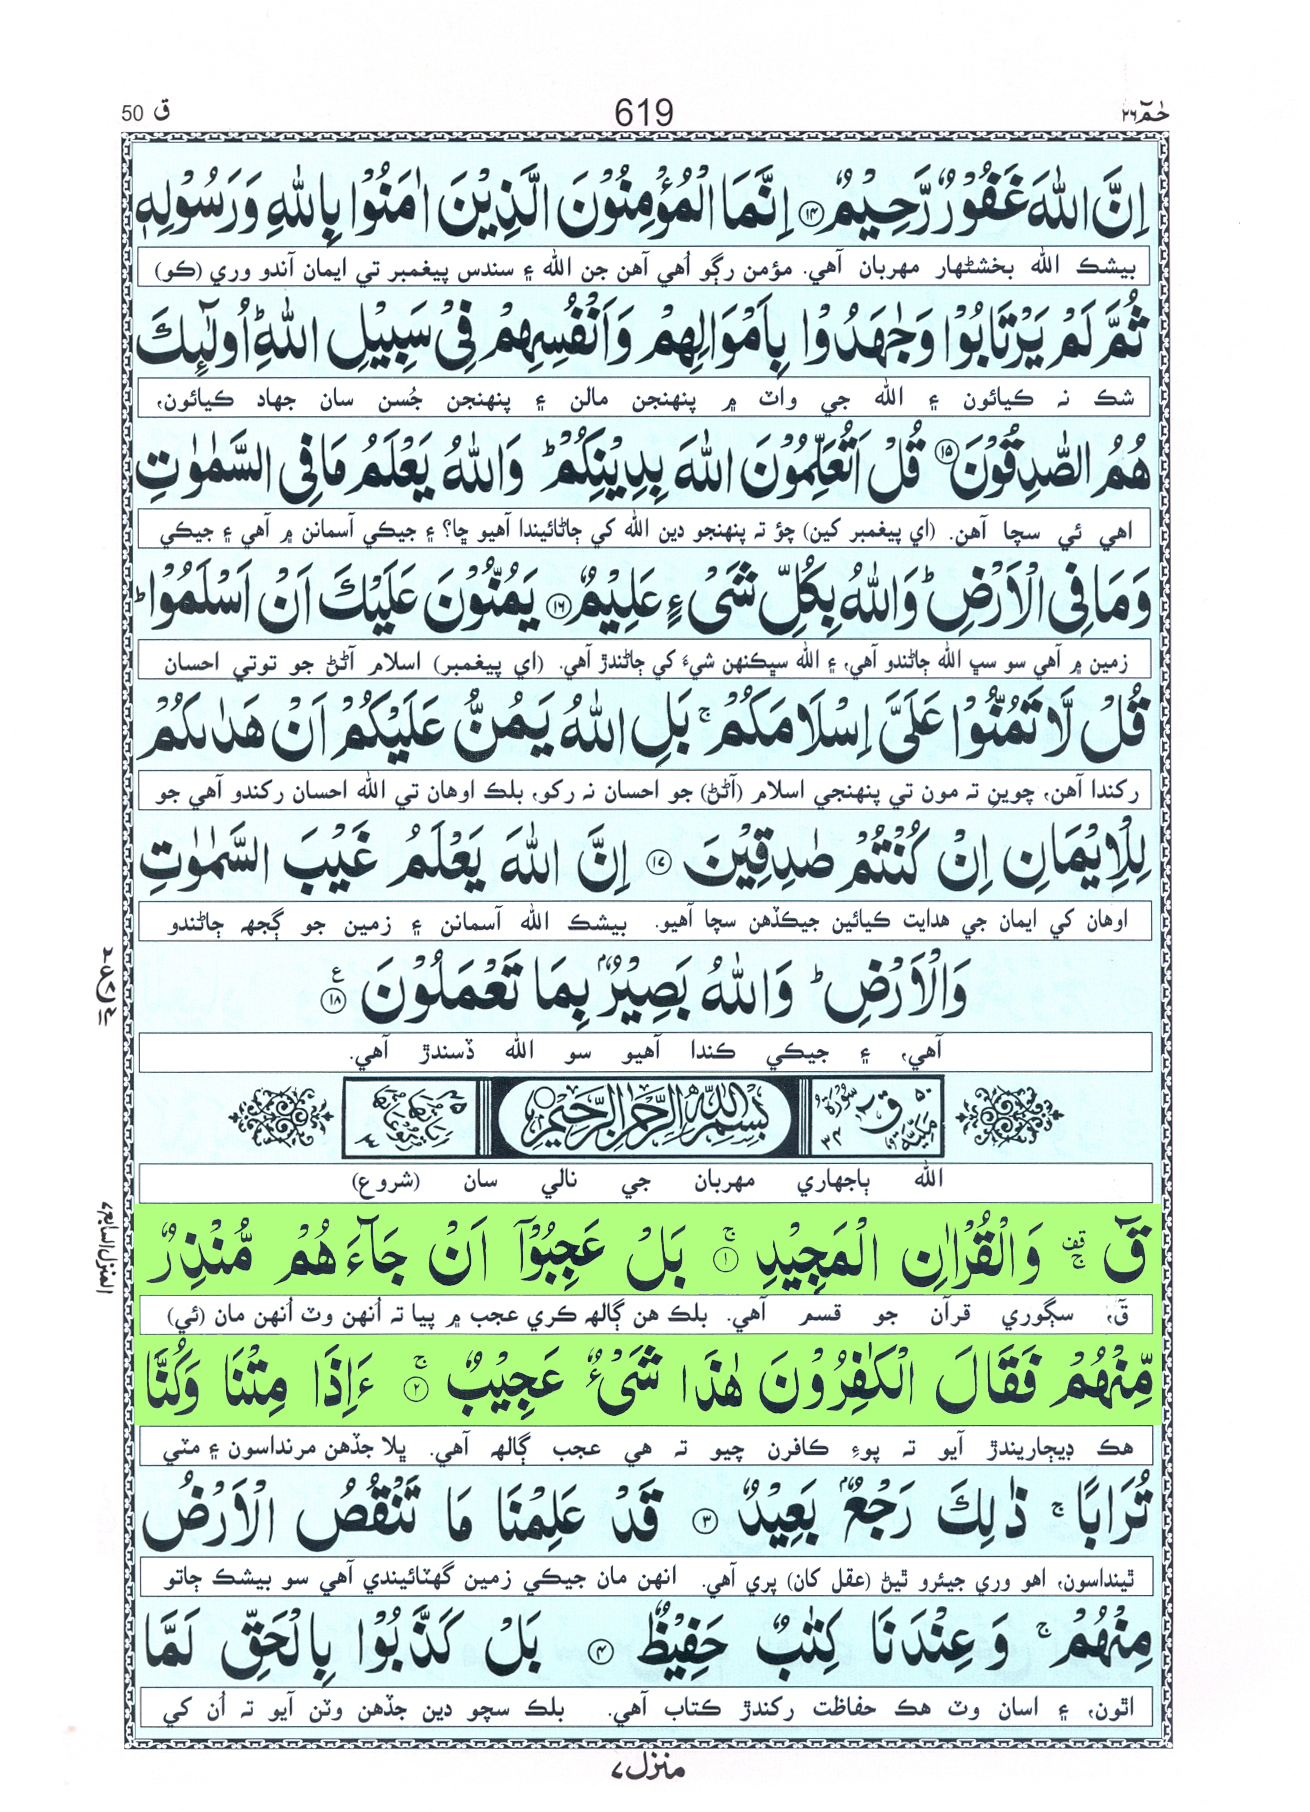 حٰمٓ ٢٦
619
قٓ 50
اِنَّ اللّٰهَ غَفُوْرٌ رَّحِيْمٌ ١٤ اِنَّمَا الْمُؤْمِنُوْنَ الَّذِيْنَ اٰمَنُوْا بِاللّٰهِ وَرَسُوْلِهٖ
بيشڪ الله بخشڻهار مهربان آهي. مؤمن رڳو اُهي آهن جن الله ۽ سندس پيغمبر تي ايمان آندو وري (ڪو)
ثُمَّ لَمْ يَرْتَابُوْا وَجٰهَدُوْا بِاَمْوَالِهِمْ وَاَنْفُسِهِمْ فِيْ سَبِيْلِ اللّٰهِ ؕ اُولٰٓئِكَ
شڪ نہ ڪيائون ۽ الله جي واٽ ۾ پنهنجن مالن ۽ پنهنجن جُسن سان جهاد ڪيائون،
هُمُ الصّٰدِقُوْنَ ١٥ قُلْ اَتُعَلِّمُوْنَ اللّٰهَ بِدِيْنِكُمْ ؕ وَاللّٰهُ يَعْلَمُ مَا فِي السَّمٰوٰتِ
اهي ئي سچا آهن. (اي پيغمبر کين) چؤ تہ پنهنجو دين الله کي ڄاڻائيندا آهيو ڇا؟ ۽ جيڪي آسمانن ۾ آهي ۽ جيڪي
وَمَا فِي الْاَرْضِ ؕ وَاللّٰهُ بِكُلِّ شَيْءٍ عَلِيْمٌ ١٦ يَمُنُّوْنَ عَلَيْكَ اَنْ اَسْلَمُوْا ؕ
زمين ۾ آهي سو سڀ الله ڄاڻندو آهي، ۽ الله سڀڪنهن شيءَ کي ڄاڻندڙ آهي. (اي پيغمبر) اسلام آڻڻ جو توتي احسان
قُلْ لَّا تَمُنُّوْا عَلَيَّ اِسْلَامَكُمْ ۚ بَلِ اللّٰهُ يَمُنُّ عَلَيْكُمْ اَنْ هَدٰىكُمْ
رکندا آهن، چوين تہ مون تي پنهنجي اسلام (آڻڻ) جو احسان نہ رکو، بلڪ اوهان تي الله احسان رکندو آهي جو
لِلْاِيْمَانِ اِنْ كُنْتُمْ صٰدِقِيْنَ ١٧ اِنَّ اللّٰهَ يَعْلَمُ غَيْبَ السَّمٰوٰتِ
اوهان کي ايمان جي هدايت ڪيائين جيڪڏهن سچا آهيو. بيشڪ الله آسمانن ۽ زمين جو ڳجهہ ڄاڻندو
وَالْاَرْضِ ؕ وَاللّٰهُ بَصِيْرٌۢ بِمَا تَعْمَلُوْنَ ١٨ ع
آهي، ۽ جيڪي ڪندا آهيو سو الله ڏسندڙ آهي.
٥٠ سُوْرَةُ قٓ مَكِّيَّةٌ ٣٤
بِسْمِ اللّٰهِ الرَّحْمٰنِ الرَّحِيْمِ
اٰيَاتُهَا ٤٥ رُكُوْعَاتُهَا ٣
الله ٻاجهاري مهربان جي نالي سان (شروع)
قٓ ۚ وَالْقُرْاٰنِ الْمَجِيْدِ ١ ۚ بَلْ عَجِبُوْٓا اَنْ جَآءَهُمْ مُّنْذِرٌ
قٓ، سڳوري قرآن جو قسم آهي. بلڪ هن ڳالهہ ڪري عجب ۾ پيا تہ اُنهن وٽ اُنهن مان (ئي)
مِّنْهُمْ فَقَالَ الْكٰفِرُوْنَ هٰذَا شَيْءٌ عَجِيْبٌ ٢ ۚ ءَاِذَا مِتْنَا وَكُنَّا
هڪ ڊيڄاريندڙ آيو تہ پوءِ ڪافرن چيو تہ هي عجب ڳالهہ آهي. ڀلا جڏهن مرنداسون ۽ مٽي
تُرَابًا ۚ ذٰلِكَ رَجْعٌۢ بَعِيْدٌ ٣ قَدْ عَلِمْنَا مَا تَنْقُصُ الْاَرْضُ
ٿينداسون، اهو وري جيئرو ٿيڻ (عقل کان) پري آهي. انهن مان جيڪي زمين گهٽائيندي آهي سو بيشڪ ڄاتو
مِنْهُمْ ۚ وَعِنْدَنَا كِتٰبٌ حَفِيْظٌ ٤ بَلْ كَذَّبُوْا بِالْحَقِّ لَمَّا
اٿون، ۽ اسان وٽ هڪ حفاظت رکندڙ ڪتاب آهي. بلڪ سچو دين جڏهن وٽن آيو تہ اُن کي
المنزل السابع
منزل ٧